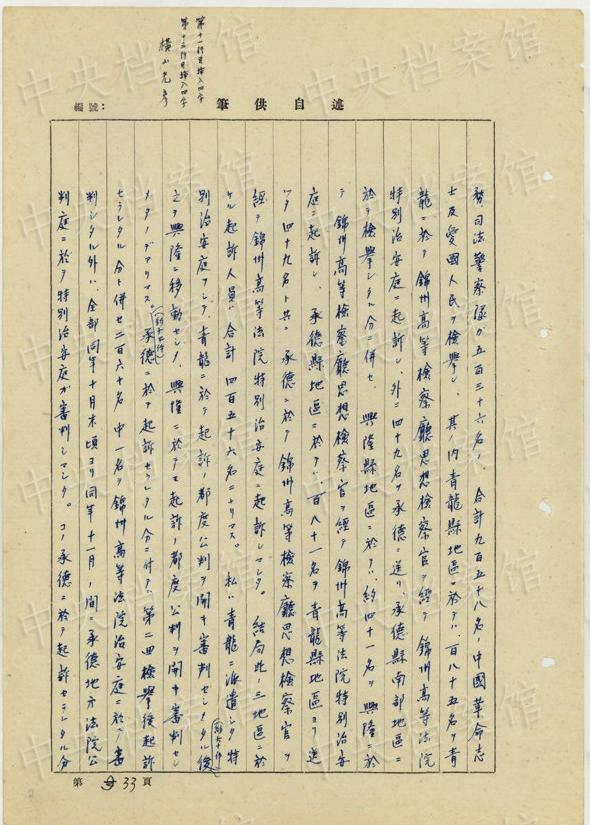 述自供筆
編號:
第十一行目挿入四字
第十三行目挿入四字
横山光彦
務司法警察隊ガ五百三十六名、合計九百五十八名ノ中國革命志
士及愛國人民ヲ檢擧シ、其ノ內青龍縣地區ニ於テハ、百八十五名ヲ青
龍ニ於テ錦州高等檢察廳思想檢察官ヲ經テ錦州高等法院
特別治安庭ニ起訴シ、外ニ四十九名ヲ承德ニ送リ、承德縣南部地區ニ
於テ檢擧シタル分ニ併セ、興隆縣地區ニ於テハ、約四十一名ヲ興隆ニ於
テ錦州高等檢察廳思想檢察官ヲ經テ錦州高等法院特別治安
庭ニ起訴シ、承德縣地區ニ於テハ、百八十一名ヲ青龍縣地區ヨリ送
ツタ四十九名ト共ニ承德ニ於テ錦州高等檢察廳思想檢察官ヲ
經テ錦州高等法院特別治安庭ニ起訴シマシタ。結局此ノ三地區ニ於
ケル起訴人員ハ合計四百五十六名ニナリマス。私ハ青龍ニ派遣シタ特
別治安庭ヲシテ、青龍ニ於テ起訴ノ都度公判ヲ開キ審判セシメタル後
之ヲ興隆ニ移動セシメ、興隆ニ於テモ起訴ノ都度公判ヲ開キ審判セシ
メタノデアリマス。承德ニ於テ起訴セラレタル分ニ付テハ、第二回檢擧後起訴
セラレタル分ト併セ二百六十名中一名ヲ錦州高等法院治安庭ニ於テ審
判シタル外ハ、全部同年十月末頃ヨリ同年十一月ノ間ニ承德地方法院公
判庭ニ於テ特別治安庭ガ審判シマシタ。コノ承德ニ於テ起訴セラレタル分
第 33 頁
中央档案馆